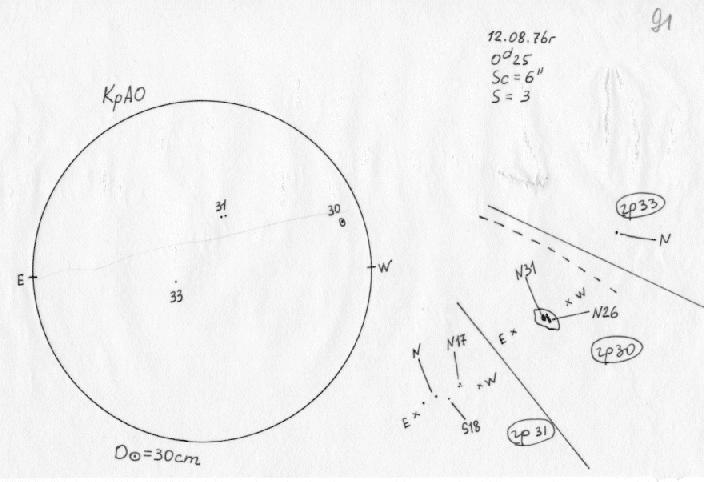 91
12.08.76г
0ᵈ25
Sc = 6"
S = 3
КрАО
31
30
E
W
33
D⊙ = 30cm
гр33
N
N31
W
N26
E
гр30
N
N17
W
E
S18
гр31